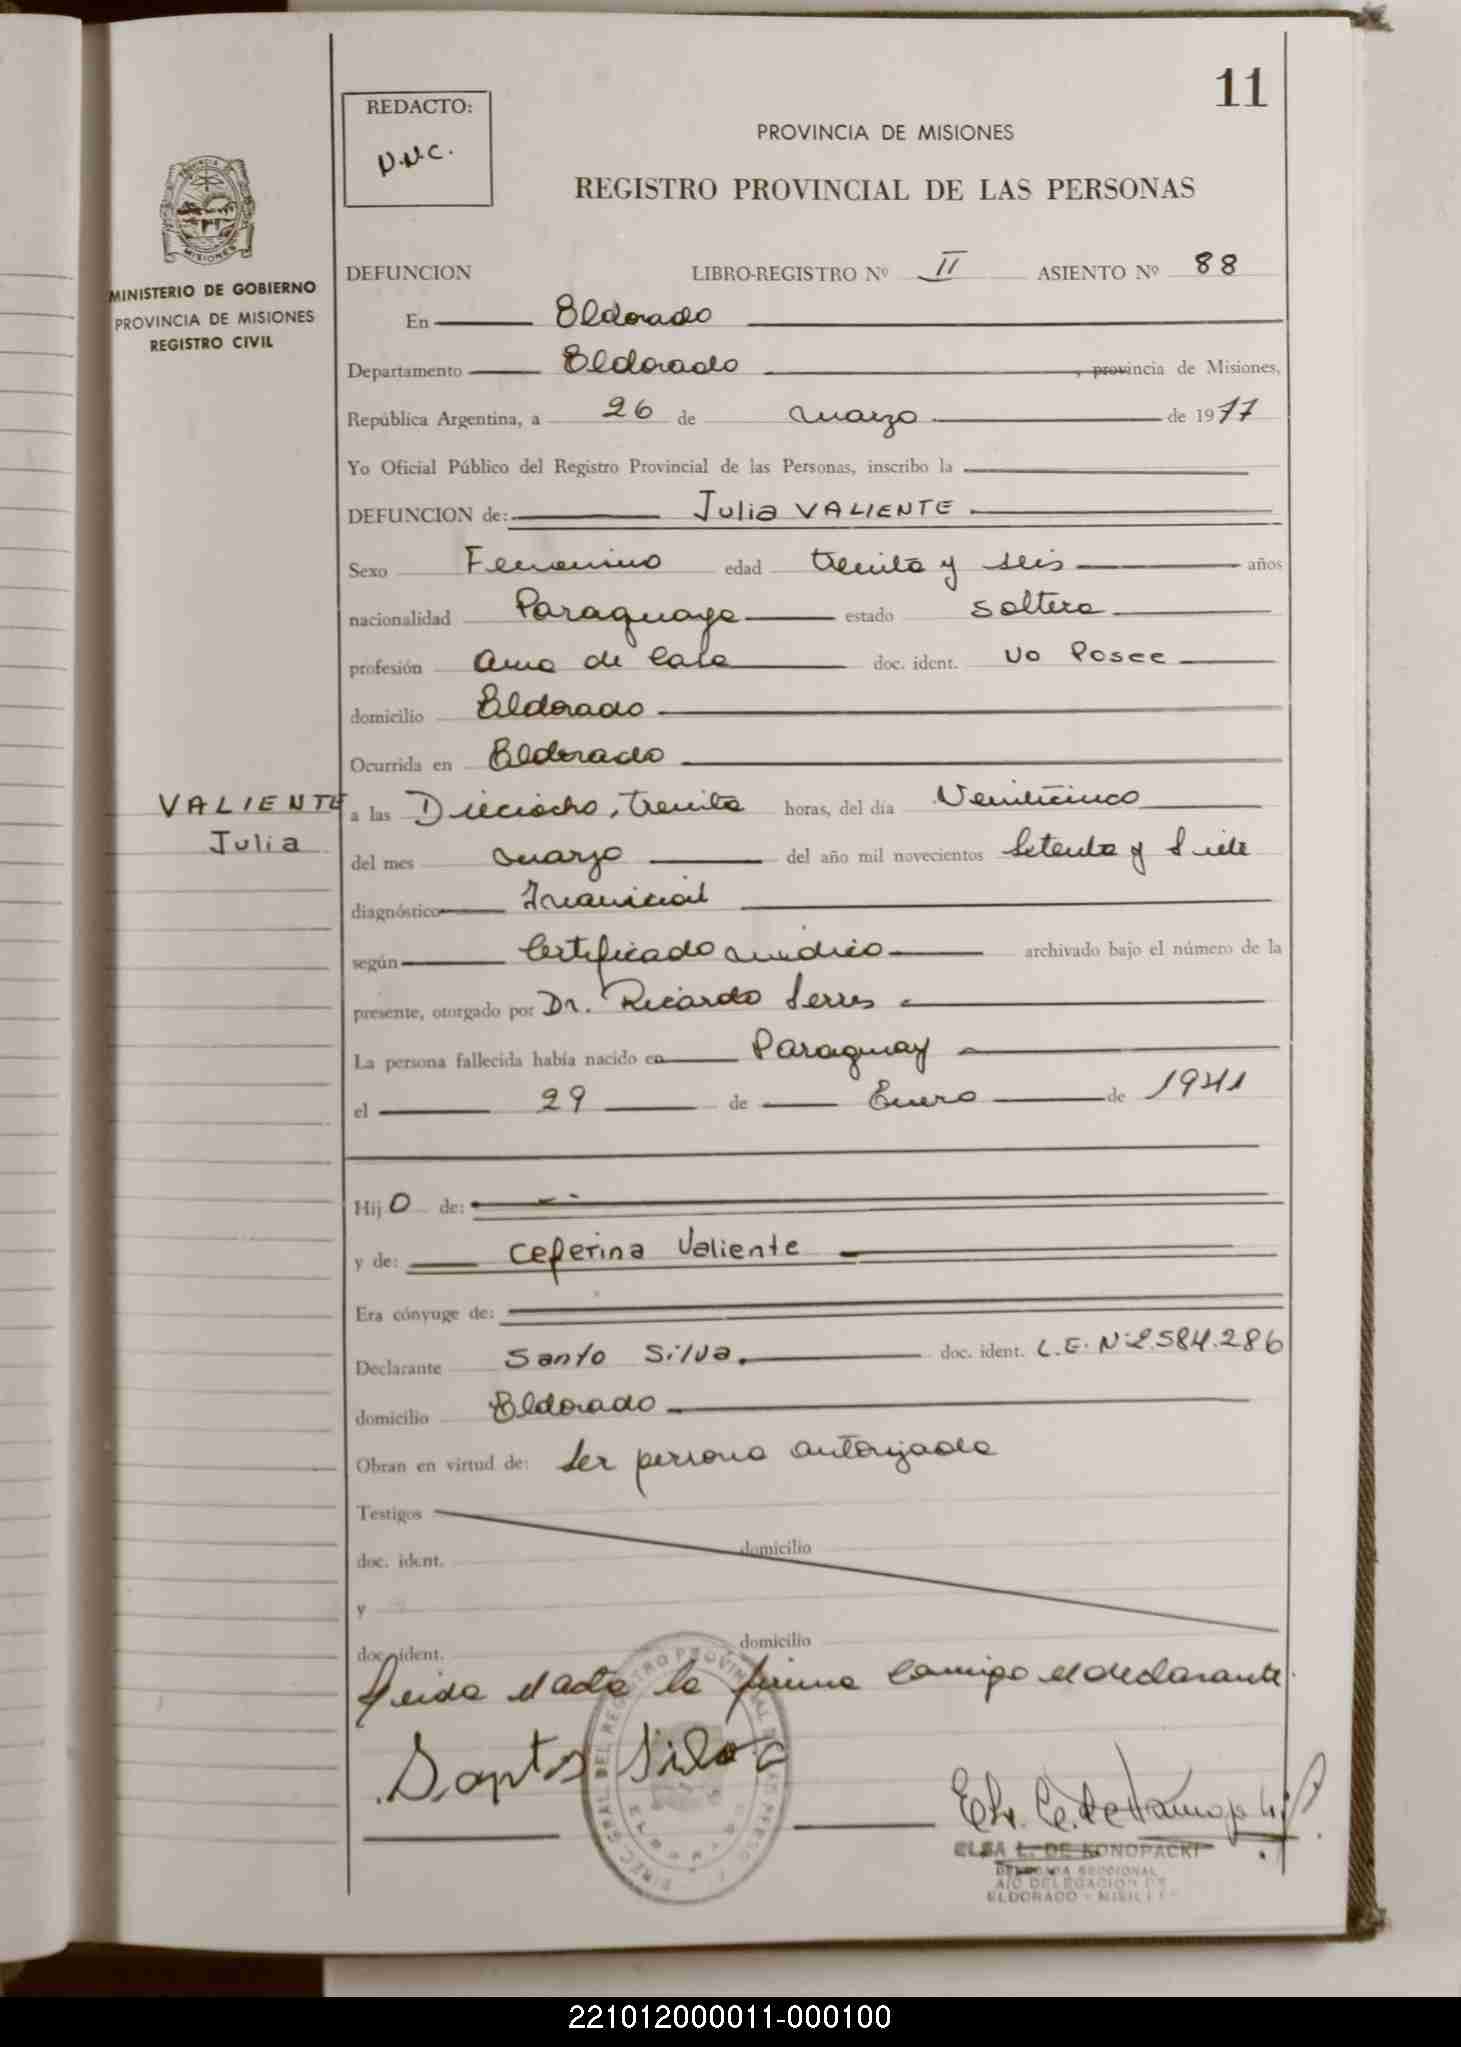 11
REDACTO:
N.N.C.
PROVINCIA DE MISIONES
REGISTRO PROVINCIAL DE LAS PERSONAS
PROVINCIA
MISIONES
MINISTERIO DE GOBIERNO
PROVINCIA DE MISIONES
REGISTRO CIVIL
DEFUNCION LIBRO-REGISTRO Nº II ASIENTO Nº 88
En Eldorado
Departamento Eldorado , provincia de Misiones,
República Argentina, a 26 de marzo de 1977
Yo Oficial Público del Registro Provincial de las Personas, inscribo la
DEFUNCION de: Julia VALIENTE
Sexo Femenino edad treinta y seis años
nacionalidad Paraguaya estado soltera
profesión ama de casa doc. ident. no Posee
domicilio Eldorado
Ocurrida en Eldorado
VALIENTE
Julia
a las Dieciocho, treinta horas, del día Veinticinco
del mes marzo del año mil novecientos Setenta y Siete
diagnóstico
según Certificado médico archivado bajo el número de la
presente, otorgado por Dr. Ricardo Serres
La persona fallecida había nacido en Paraguay
el 29 de Enero de 1941
Hijo de:
y de: Ceferina Valiente
Era cónyuge de:
Declarante Santo Silva. doc. ident. L.E. Nº 2.584.286
domicilio Eldorado
Obran en virtud de: Ser persona autorizada
Testigos
doc. ident. domicilio
y
doc. ident. domicilio
Leida el acta la firma conmigo el declarante.
Santo Silva
ELSA L. DE KONOPACKI
DELEGADA SECCIONAL
A/C DELEGACION
ELDORADO - MISIONES
221012000011-000100